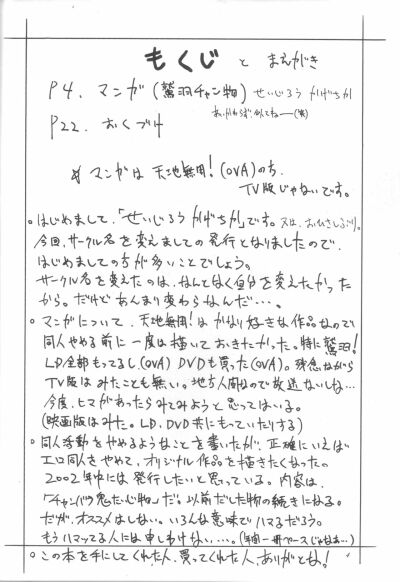 もくじ と まえがき
P4. マンガ (鷲羽チャン物) せいじろう かげちか
あいかわらず 似てねー(笑)
P22. おくづけ
※マンガは 天地無用!(OVA)のち、
TV版じゃないです。
○はじめまして、「せいじろう かげちか」です。又は、おひさしぶり。
今回、サークル名を変えましての発行となりましたので、
はじめましての方が多いことでしょう。
サークル名を変えたのは、なんとなく自分を変えたかった
から。だけどあんまり変わらなんだ…。
○マンガについて、天地無用!はかなり好きな作品なので
同人やめる前に一度は描いておきたかった。特に鷲羽!
LD全部もってるし(OVA) DVDも買った(OVA)。残念ながら
TV版はみたことも無い。地方人間なので放送ないしな…
今度、ヒマがあったらみてみようと思ってはいる。
(映画版はみた。LD、DVD共にもっていたりする)
○同人活動をやめるようなことを書いたが、正確にいえば
エロ同人をやめて、オリジナル作品を描きたくなった。
2002年中には発行したいと思っている。内容は、
「チャンバラ鬼たいじ物」だ。以前だした物の続きになる。
だが、オススメはしない。いろんな意味でハマるだろう。
もうハマってる人には申しわけない…。(年間一冊ペースじゃなぁ…)
○この本を手にしてくれた人、買ってくれた人、ありがとな!